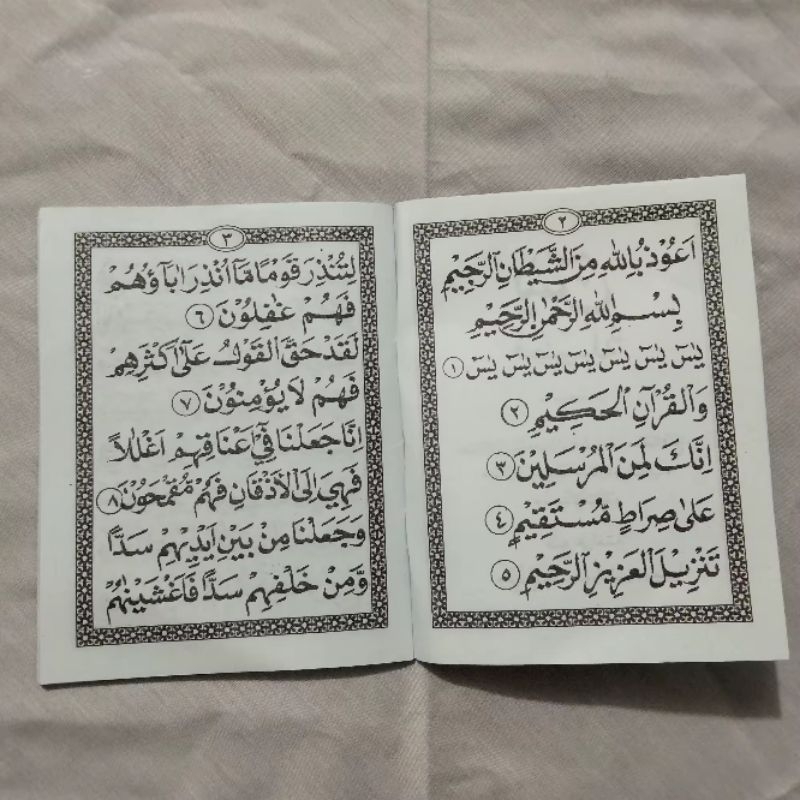 ٢
اَعُوْذُ بِاللهِ مِنَ الشَّيْطَانِ الرَّجِيْمِ
بِسْمِ اللهِ الرَّحْمٰنِ الرَّحِيْمِ
يٰسٓ يٰسٓ يٰسٓ يٰسٓ يٰسٓ يٰسٓ يٰسٓ ١
وَالْقُرْآنِ الْحَكِيْمِ ٢
اِنَّكَ لَمِنَ الْمُرْسَلِيْنَ ٣
عَلٰى صِرَاطٍ مُسْتَقِيْمٍ ٤
تَنْزِيْلَ الْعَزِيْزِ الرَّحِيْمِ ٥
٣
لِتُنْذِرَ قَوْمًا مَّآ اُنْذِرَ اٰبَآؤُهُمْ
فَهُمْ غٰفِلُوْنَ ٦
لَقَدْ حَقَّ الْقَوْلُ عَلٰٓى اَكْثَرِهِمْ
فَهُمْ لَا يُؤْمِنُوْنَ ٧
اِنَّا جَعَلْنَا فِيْٓ اَعْنَاقِهِمْ اَغْلَالًا
فَهِيَ اِلَى الْاَذْقَانِ فَهُمْ مُقْمَحُوْنَ ٨
وَجَعَلْنَا مِنْ بَيْنِ اَيْدِيْهِمْ سَدًّا
وَّمِنْ خَلْفِهِمْ سَدًّا فَاَغْشَيْنٰهُمْ